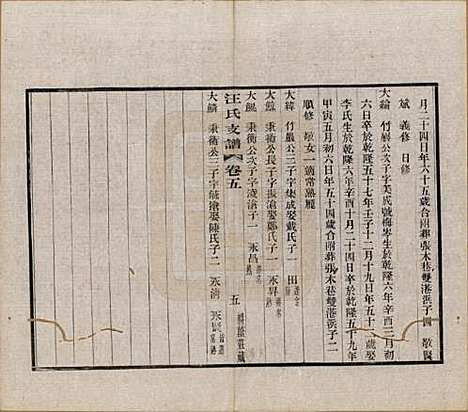 月二十四日年六十五歲合兩葬張木巷雙港浜子四 敬賢
斌 義修 日修
大綸 竹巖公次子字美成號梅岑生於乾隆六年辛酉三月初
六日卒於乾隆五十七年壬子十二月十九日年五十二歲娶
李氏生於乾隆六年辛酉十月二十四日卒於乾隆五十九年
甲寅五月初六日年五十四歲合兩葬張木巷雙港浜子二
順修 敬 女一適常熟龐
大緯 竹巖公三子字集成娶戴氏子二 田
大鯤 秉衡公長子字振滄娶鄭氏子一 永昇
大鵾 秉衡公次子字陵滄子一 永昌
汪氏支譜 卷五 五 耕蔭莊藏
大鱗 秉衡公三子字毓滄娶陳氏子二 永清 永